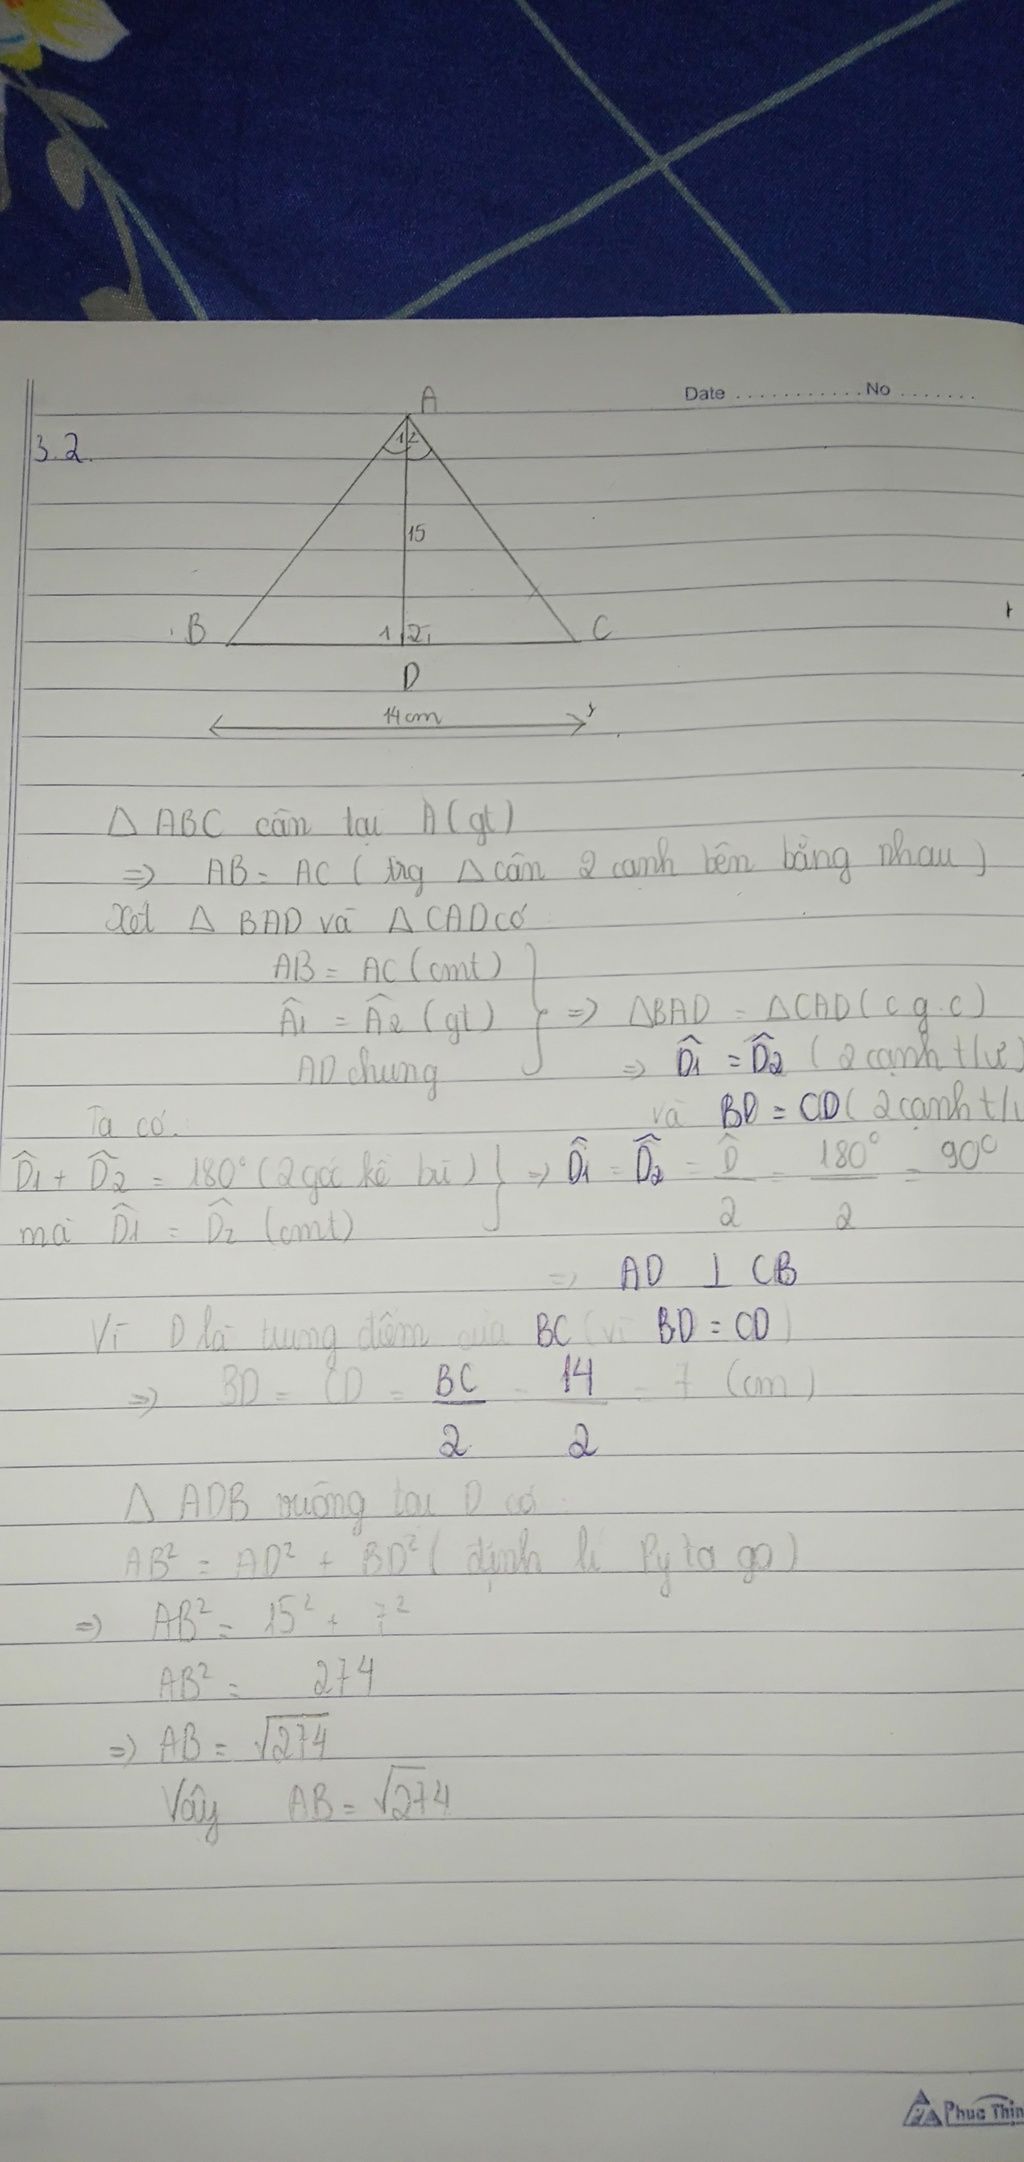 Date ............No .......
3.2.
A
1 2
15
B
1 2
C
D
14cm
△ ABC cân tại A (gt)
=> AB = AC ( trg △ cân 2 cạnh bên bằng nhau )
Xét △ BAD và △ CAD có
AB = AC (cmt)
Â1 = Â2 (gt) } => △BAD = △CAD ( c g.c )
AD chung
=> D̂1 = D̂2 ( 2 cạnh t/ư )
và BD = CD ( 2 cạnh t/ư
Ta có.
D̂1 + D̂2 = 180° ( 2 góc kề bù ) } => D̂1 = D̂2 = D̂/2 = 180°/2 = 90°
mà D̂1 = D̂2 (cmt)
=> AD ⊥ CB
Vì D là trung điểm của BC (vì BD = CD)
=> BD = CD = BC/2 = 14/2 = 7 (cm)
△ ADB vuông tại D có
AB² = AD² + BD² ( định lí Py ta go )
=> AB² = 15² + 7²
AB² = 274
=> AB = √274
Vậy AB = √274
Phuc Thin